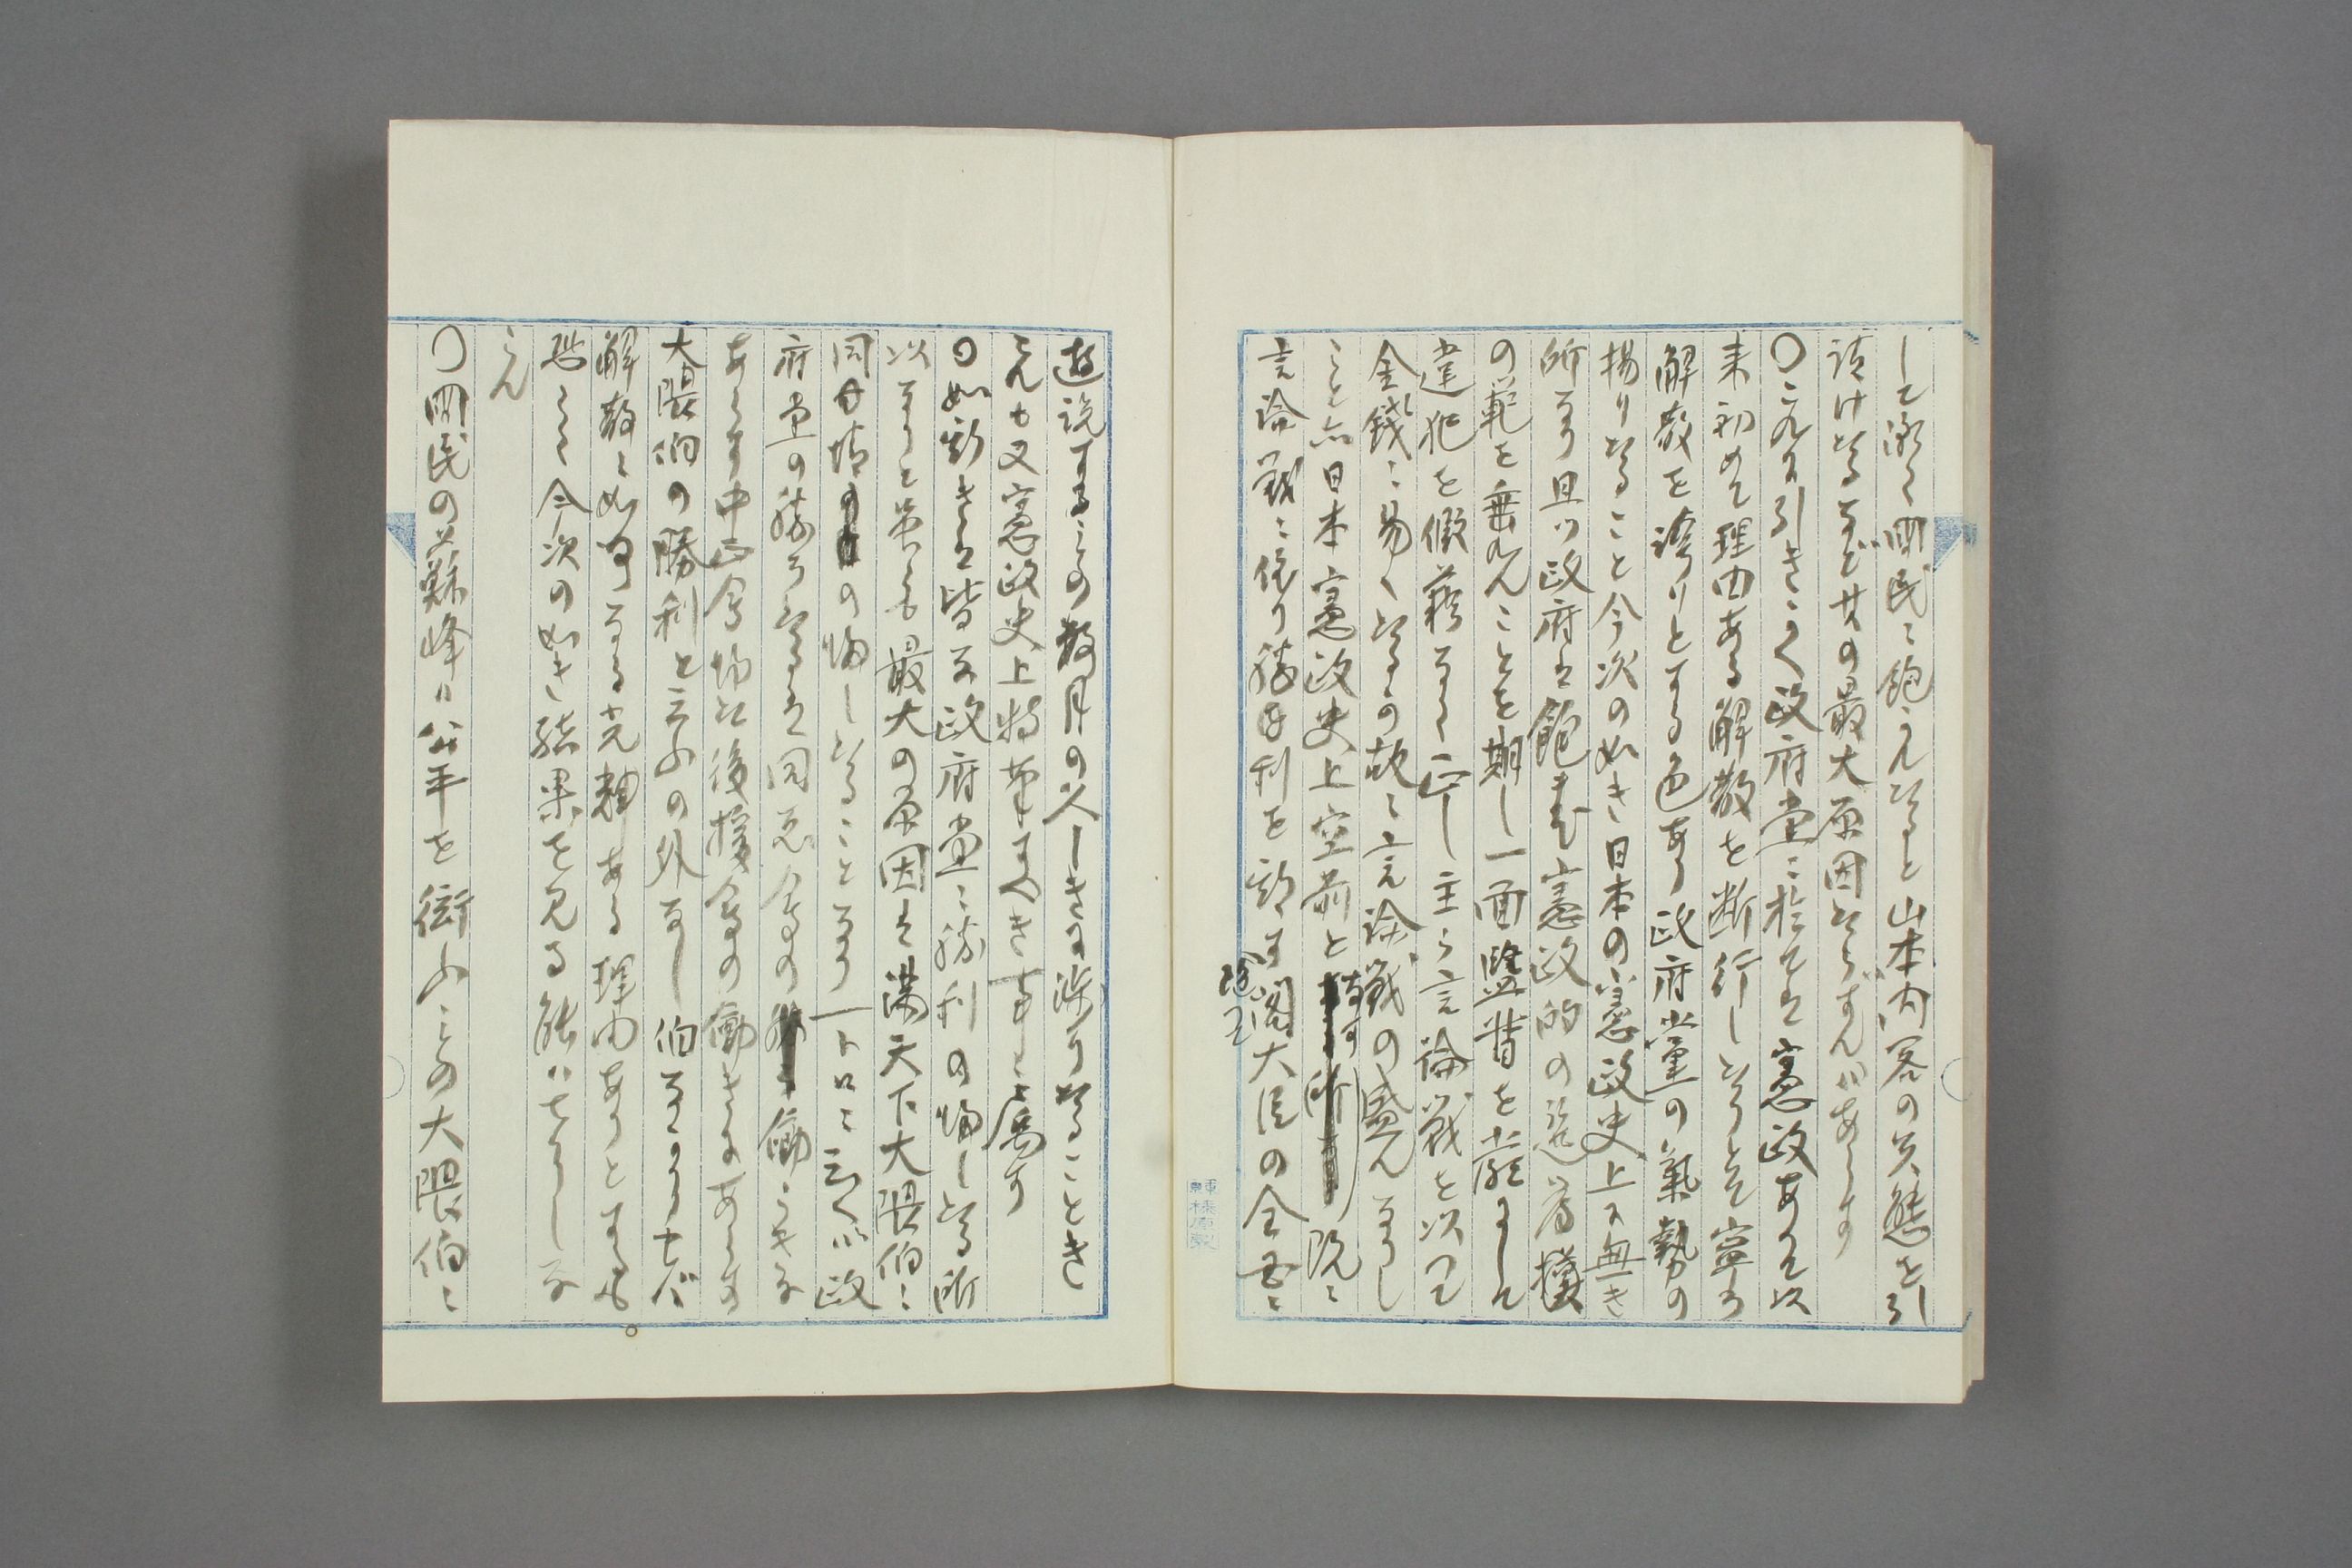 して漸く国民に飽かれたると山本内閣の失態を引
続けたるなど其の最大原因たらずんばあらす
〇これに引きかへ政府党に於ては憲政あつて以
来初めて理由ある解散を断行したりとて寧ろ
解散を誇りとする色あり政府党の気勢の
揚りたること今次の如き日本の憲政史上に無き
所なり且つ政府は飽まで憲政的の選挙模
の範を垂れんことを期し一面監督を厳にして
違犯を仮藉なく正し主ら言論戦を以つて
金銭に易へたるの故に言論戦の盛んなりし
こと亦日本憲政史上空前と称す 既に
言論戦に依り勝利を期す 閣大臣の全国に
遊説するもの数月の久しきに渉りたることき
これも又憲政史上特筆すへき事に属す
〇如斯きは皆な政府党に勝利の帰したる所
以なりと雖も最大の原因は満天下大隈伯に
同情の帰したることなり一ト口に云へば政
府党の勝ちたるは同志会の働らきに
あらす中正会将た後援会の働きにあらす
大隈伯の勝利と云ふの外なし伯なかりせば
解散に如何なる光輝ある理由ありとするも
恐らく今次の如き結果を見る能はさりしな
らん
〇国民の蘇峰は公平を衒ふもの大隈伯に